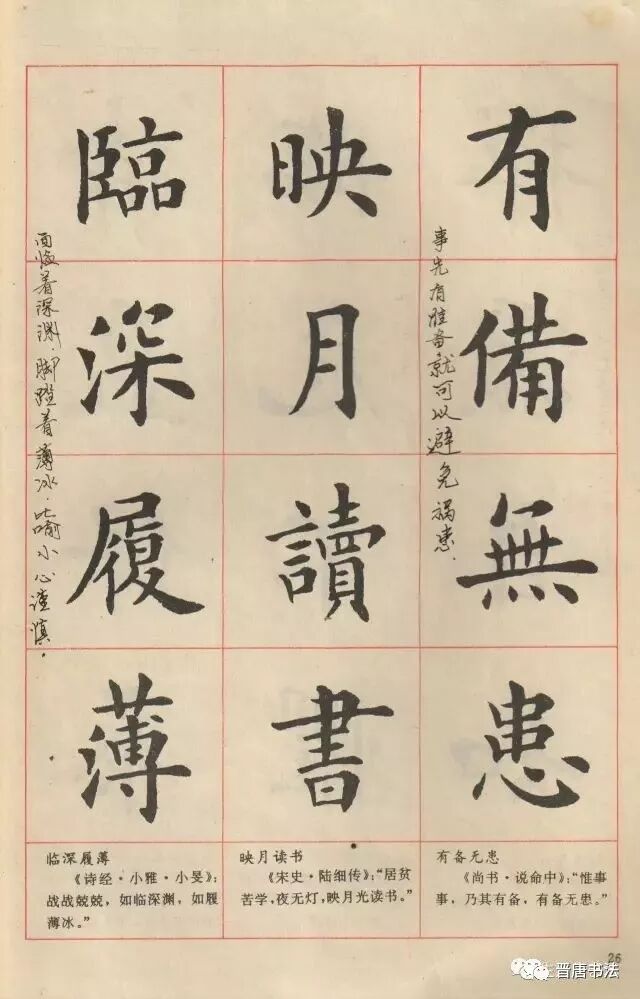 有備無患
事先有准备就可以避免祸患.
映月讀書
臨深履薄
面临着深渊.脚蹬着薄冰.比喻小心谨慎.
有备无患
《尚书·说命中》:“惟事
事,乃其有备,有备无患。”
映月读书
《宋史·陆细传》:“居贫
苦学,夜无灯,映月光读书。”
临深履薄
《诗经·小雅·小旻》:
战战兢兢,如临深渊,如履
薄冰。”
26
晋唐书法